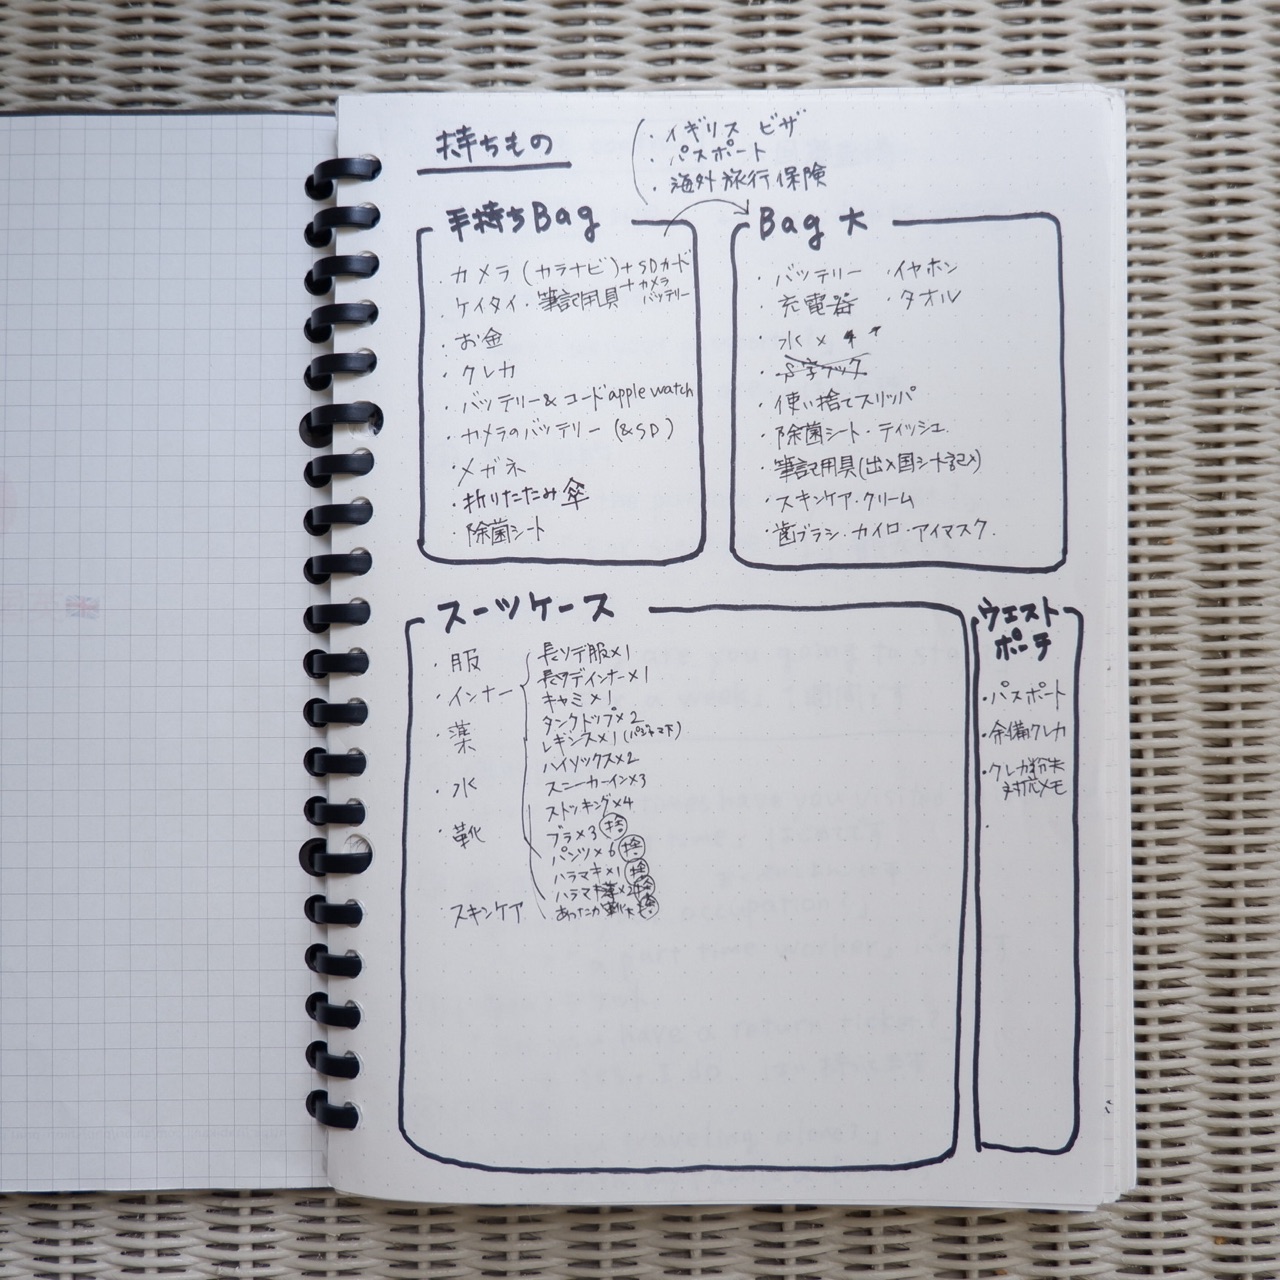 持ちもの
・イギリス ビザ
・パスポート
・海外旅行保険
手持ちBag
・カメラ(カラナビ)+SDカード
・ケイタイ・筆記用具+カメラバッテリー
・お金
・クレカ
・バッテリー&コードapple watch
・カメラのバッテリー(&SD)
・メガネ
・折りたたみ傘
・除菌シート
Bag 大
・バッテリー ・イヤホン
・充電器 ・タオル
・水×
・使い捨てスリッパ
・除菌シート・ティッシュ
・筆記用具(出入国シート記入)
・スキンケア・クリーム
・歯ブラシ・カイロ・アイマスク.
スーツケース
・服
・インナー
・薬
・水
・靴
スキンケア
長ソデ服×1
長ソデインナー×1
キャミ×1
タンクトップ×2
レギンス×1(パジャマ下)
ハイソックス×2
スニーカーイン×3
ストッキング×4
ブラ×3 捨
パンツ×6 捨
ハラマキ×1 捨
ハラマキ ×2 捨
あったか靴下 捨
ウエストポーチ
・パスポート
・余備クレカ
・クレカ紛失
対応メモ